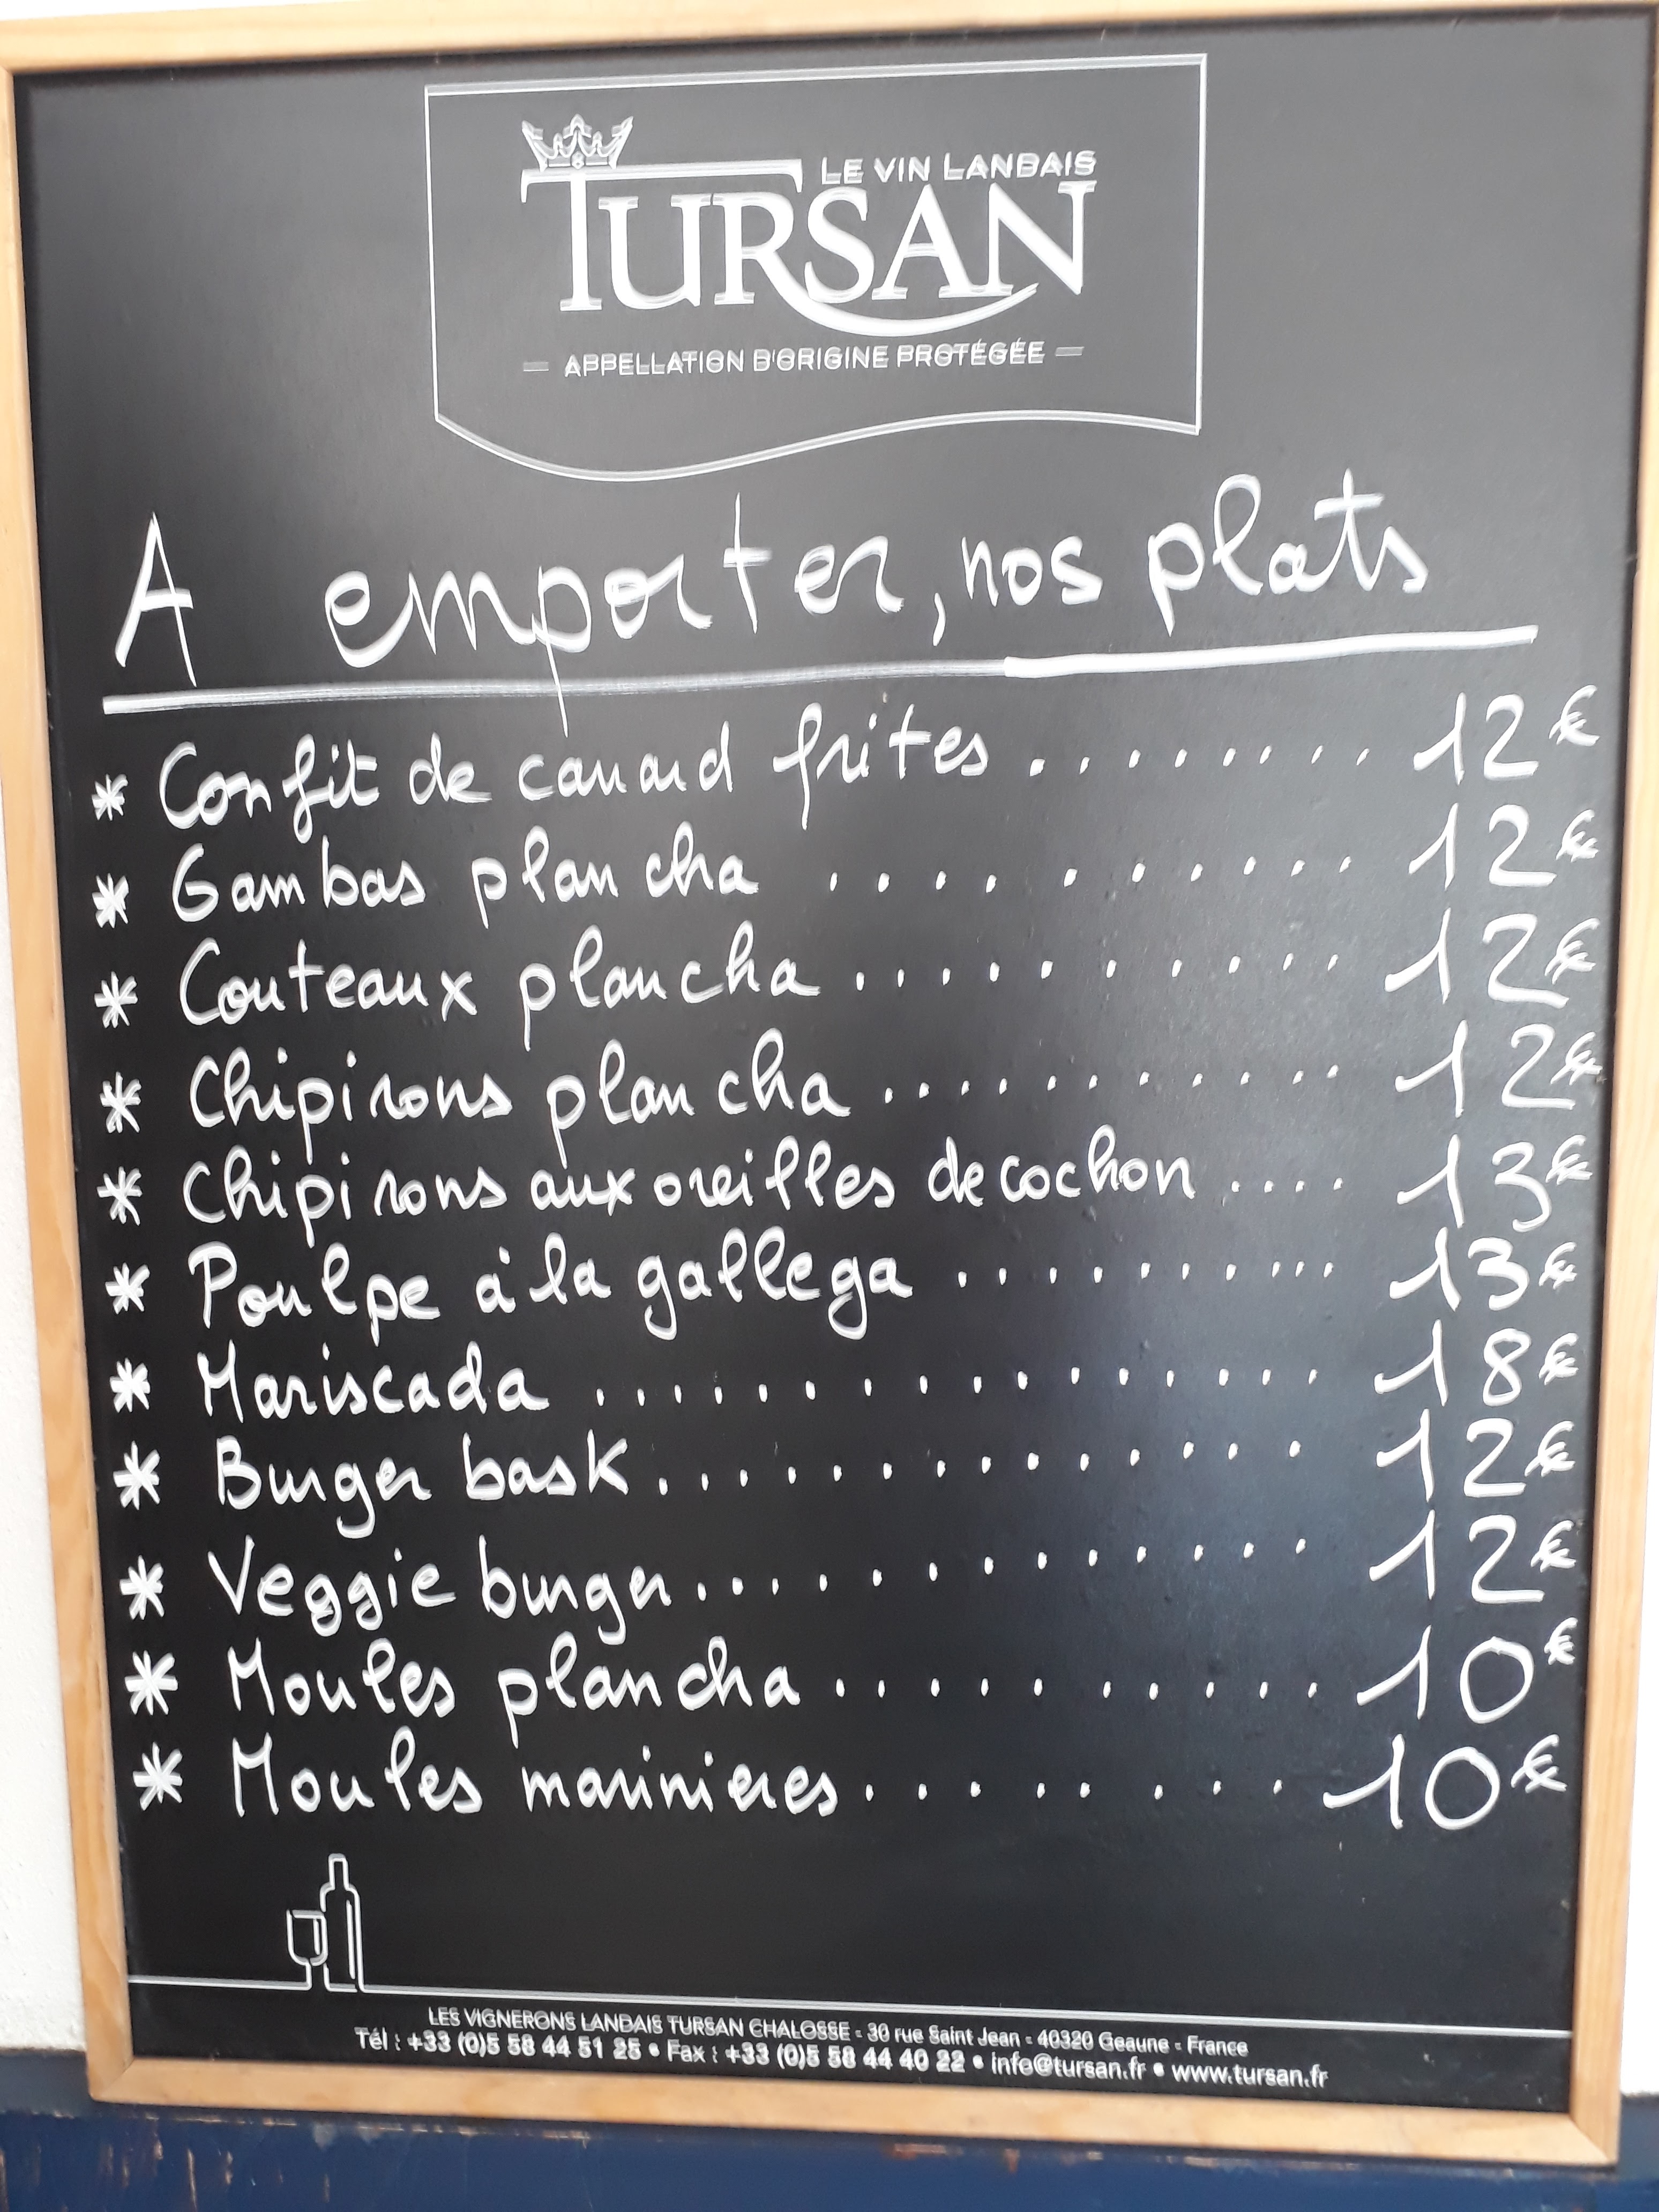 LE VIN LANDAIS
TURSAN
— APPELLATION D'ORIGINE PROTÉGÉE —
A emporter, nos plats
* Confit de canard frites ......... 12€
* Gambas plancha .......... 12€
* Couteaux plancha .......... 12€
* Chipirons plancha ........... 12€
* Chipirons aux oreilles de cochon .... 13€
* Poulpe à la gallega ........... 13€
* Mariscada ................ 18€
* Burger bask .............. 12€
* Veggie burger ............. 12€
* Moules plancha ........... 10€
* Moules marinieres ........ 10€
LES VIGNERONS LANDAIS TURSAN CHALOSSE - 30 rue Saint Jean - 40320 Geaune - France
Tél : +33 (0)5 58 44 51 25 • Fax : +33 (0)5 58 44 40 22 • info@tursan.fr • www.tursan.fr